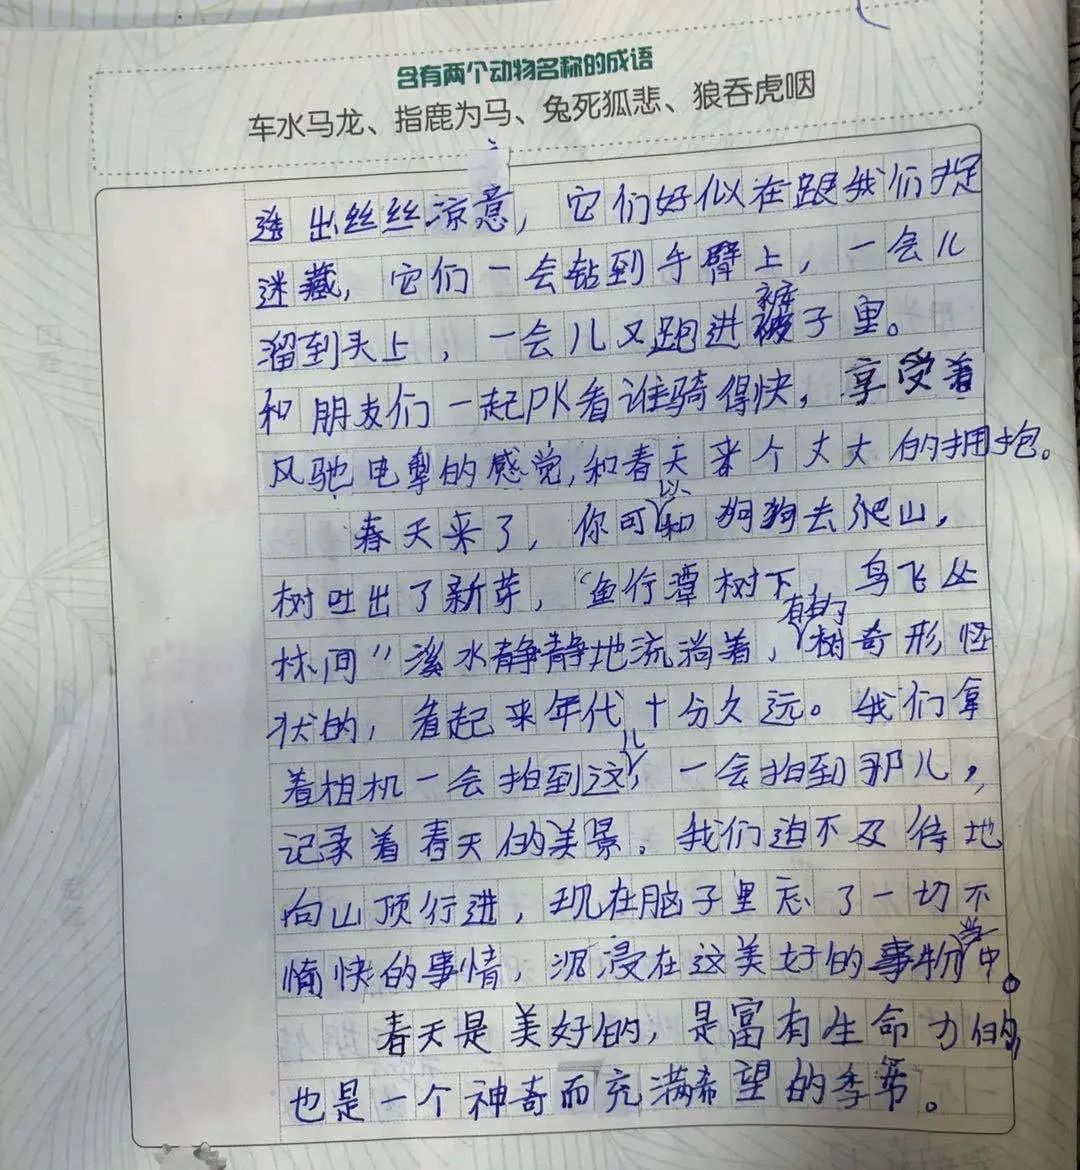 含有两个动物名称的成语
车水马龙、指鹿为马、兔死狐悲、狼吞虎咽
透出丝丝凉意，它们好似在跟我们捉
迷藏，它们一会钻到手臂上，一会儿
溜到头上，一会儿又跑进裤子里。
和朋友们一起PK看谁骑得快，享受着
风驰电掣的感觉，和春天来个大大的拥抱。
春天来了，你可以和狗狗去爬山，
树吐出了新芽，“鱼行潭树下，鸟飞丛
林间”溪水静静地流淌着，有的树奇形怪
状的，看起来年代十分久远。我们拿
着相机一会拍到这儿，一会拍到那儿，
记录着春天的美景。我们迫不及待地
向山顶行进，现在脑子里忘了一切不
愉快的事情，沉浸在这美好的事物当中。
春天是美好的，是富有生命力的，
也是一个神奇而充满希望的季节。